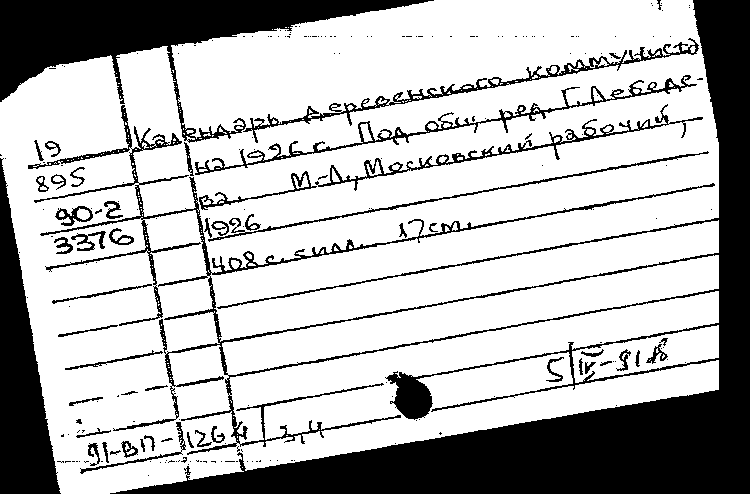 Календарь деревенского коммуниста
19 на 1926 г. Под общ. ред. Г. Лебеде-
895 ва. М.-Л., Московский рабочий,
90-2 1926.
3376 408 с. с илл. 17 см.
5/IV-91
91-ВП- 1264/3,4